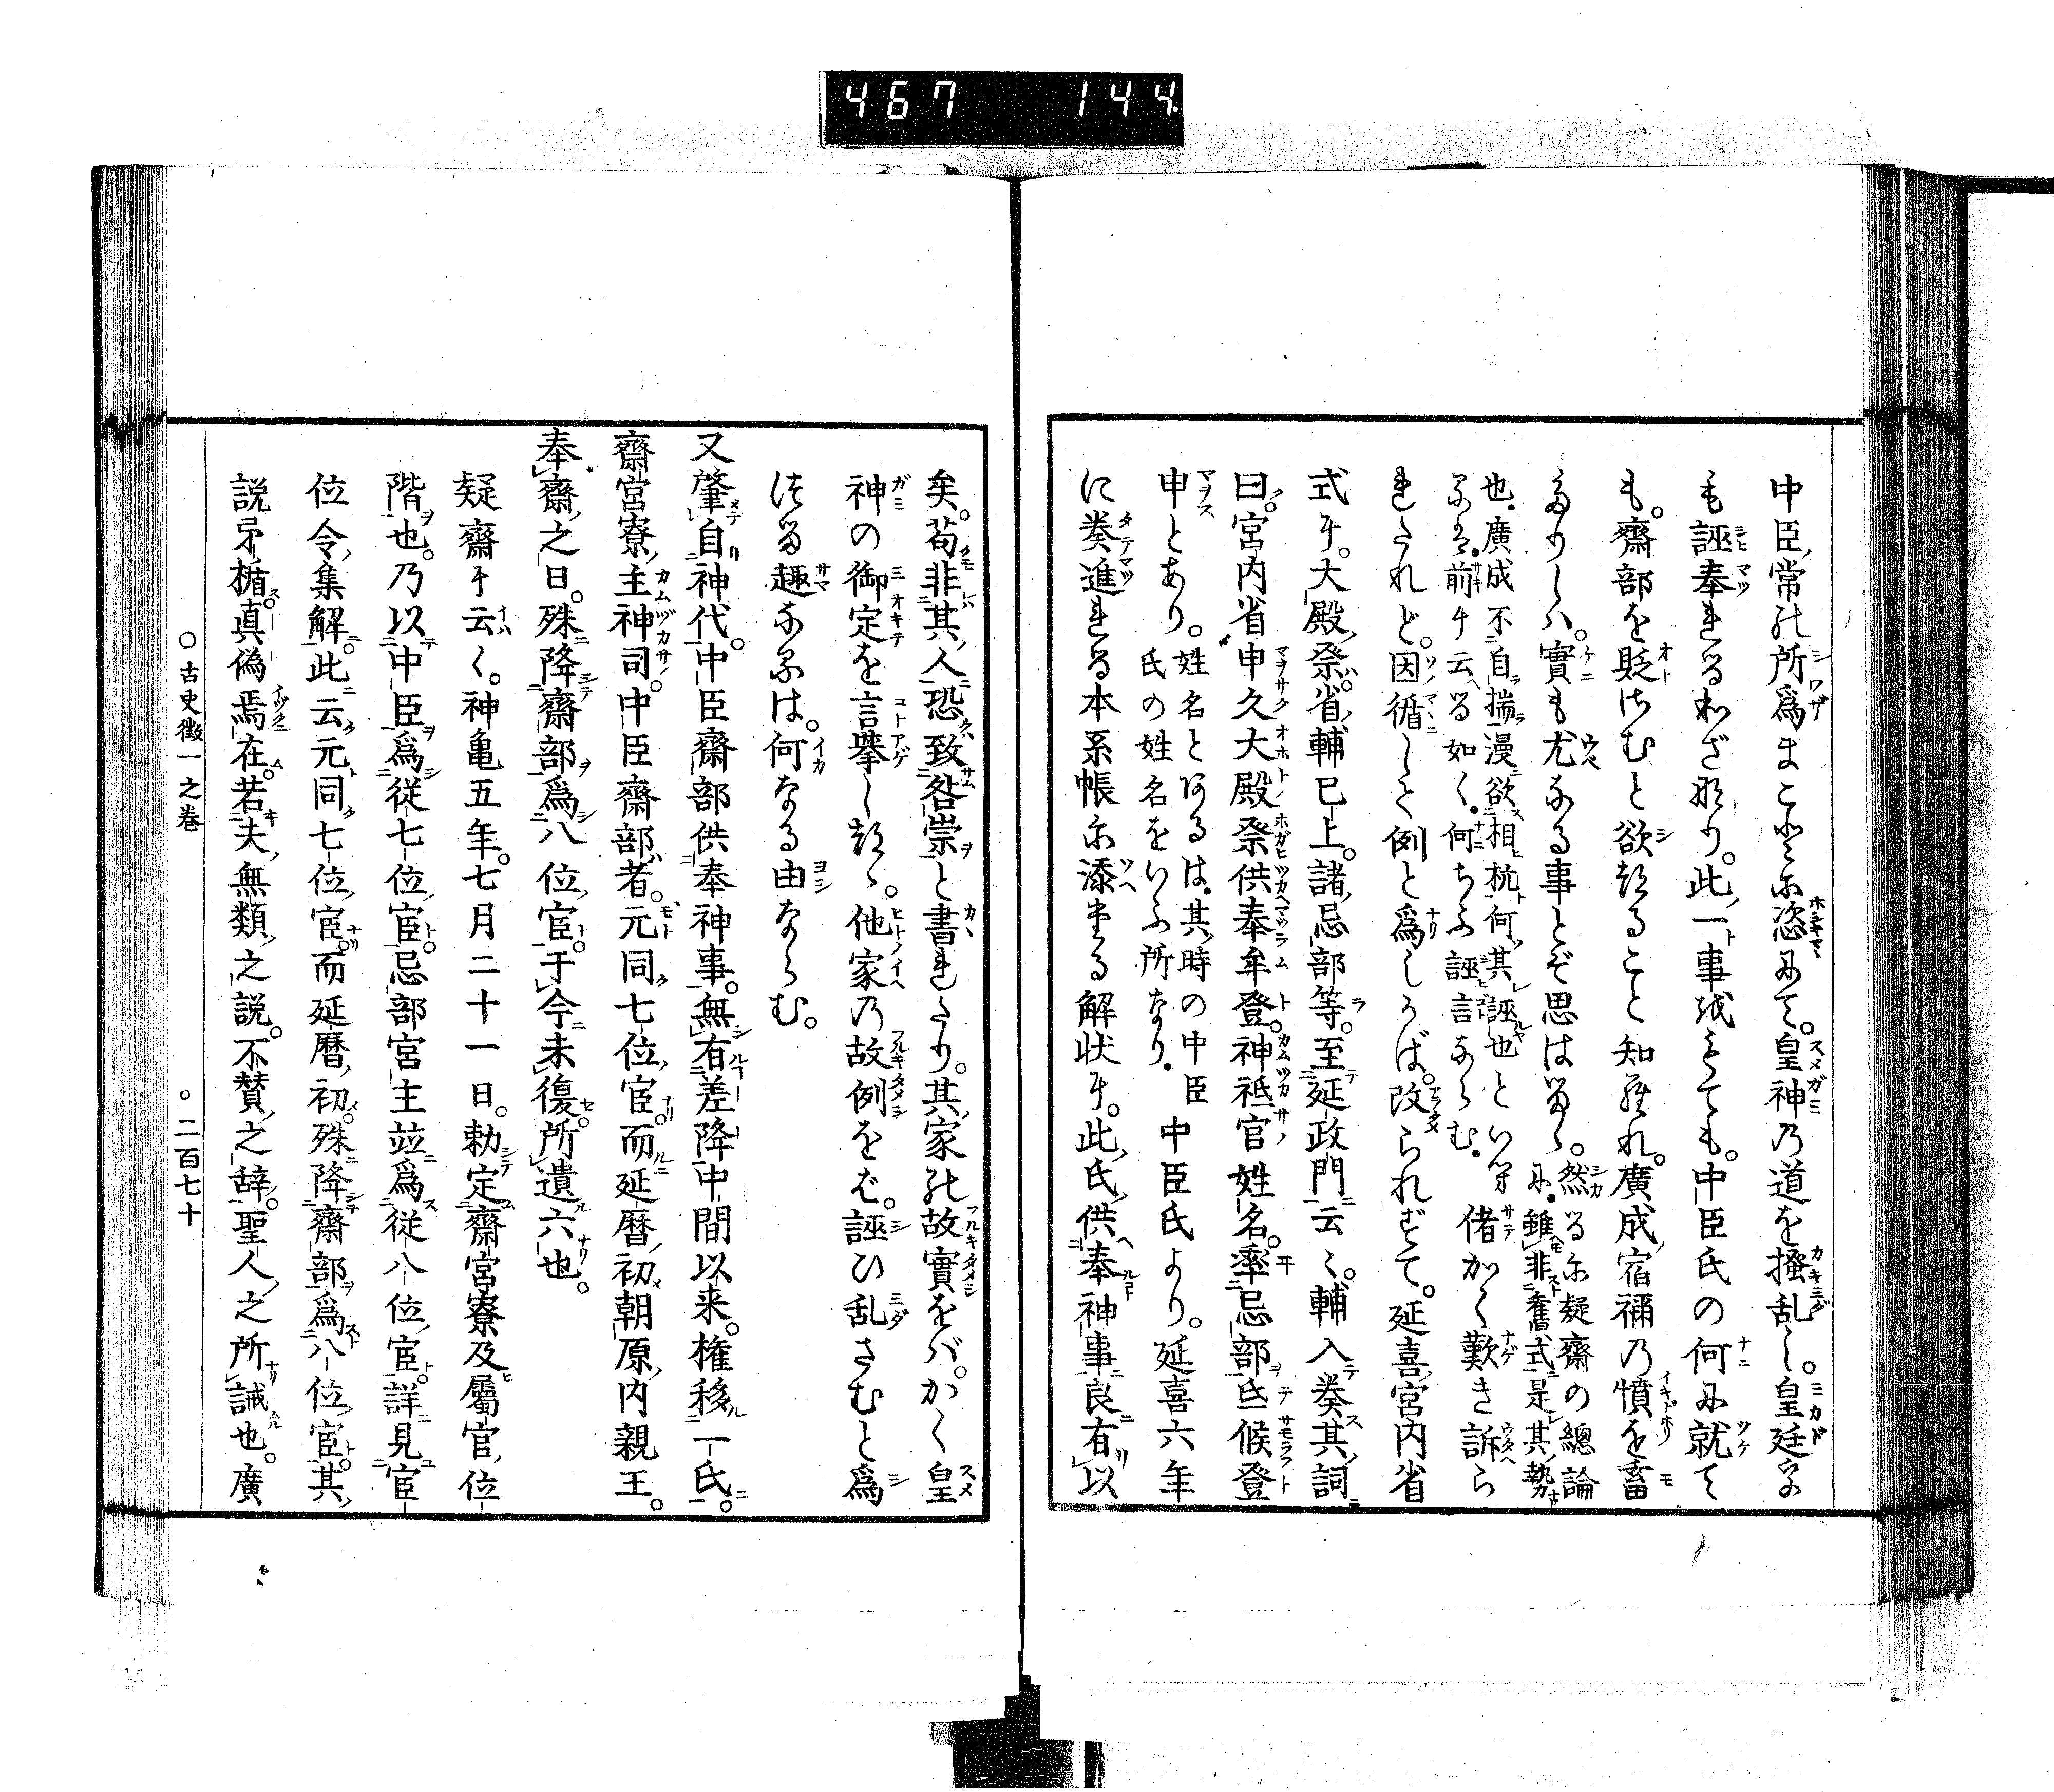 467 144
中臣ノ常の所爲まことに恣にて。皇神乃道を掻乱し。皇廷に
も誣奉れるわざなり。此ノ一事をもても。中臣氏の何に就て
も。齋部を貶さむと欲たること知られ。廣成ノ宿禰乃憤を畜
たりしハ。實も尤なる事とぞ思はるゝ。
然るに疑齋の總論
に。雖非舊式是其ノ勢
也。廣成不自揣漫欲相抗何其誣也といへ
るは。前チ云る如く。何ちふ誣言ならむ。
偖かく歎き訴ら
れたれど。因循しく例と爲しかば。改られずて。延喜宮内省
式チ。大殿祭。省ノ輔已上。諸ノ忌部等。至延政門云く。輔入奏其ノ詞
曰。宮内省申久大殿祭供奉牟登。神祗官姓名。率忌部氐候登
申とあり。
姓名とあるは。其ノ時の中臣
氏の姓名をいふ所なり。
中臣氏より。延喜六年
に奏進れる本系帳に添たる解状チ。此ノ氏ノ供奉神事良有以
矣。苟非其ノ人恐致咎崇と書れたり。其ノ家の故實をバ。かく皇
神の御定を言擧したゝ。他家乃故例をば。誣ひ乱さむと爲
たる趣なるは。何なる由ならむ。
又肇自神代。中臣齋部供奉神事。無有差降中間以来。権移一氏。
齋宮寮ノ主神司。中臣齋部者。元同七位ノ宦。而延暦ノ初朝原ノ内親王。
奉齋之日。殊降齋部爲八位ノ宦。于今未復所遺六也。
疑齋チ云く。神亀五年。七月二十一日。勅定齋宮寮及屬官ノ位
階也。乃以中臣爲従七位ノ宦。忌部宮主竝爲従八位ノ宦。詳見宦
位令ノ集解。此云元同七位ノ宦。而延暦ノ初殊降齋部爲八位ノ宦。其ノ
説矛楯真偽焉在。若夫無類之説。不賛之辞。聖人之所誡也。廣
○古史徴一之巻 ○二百七十